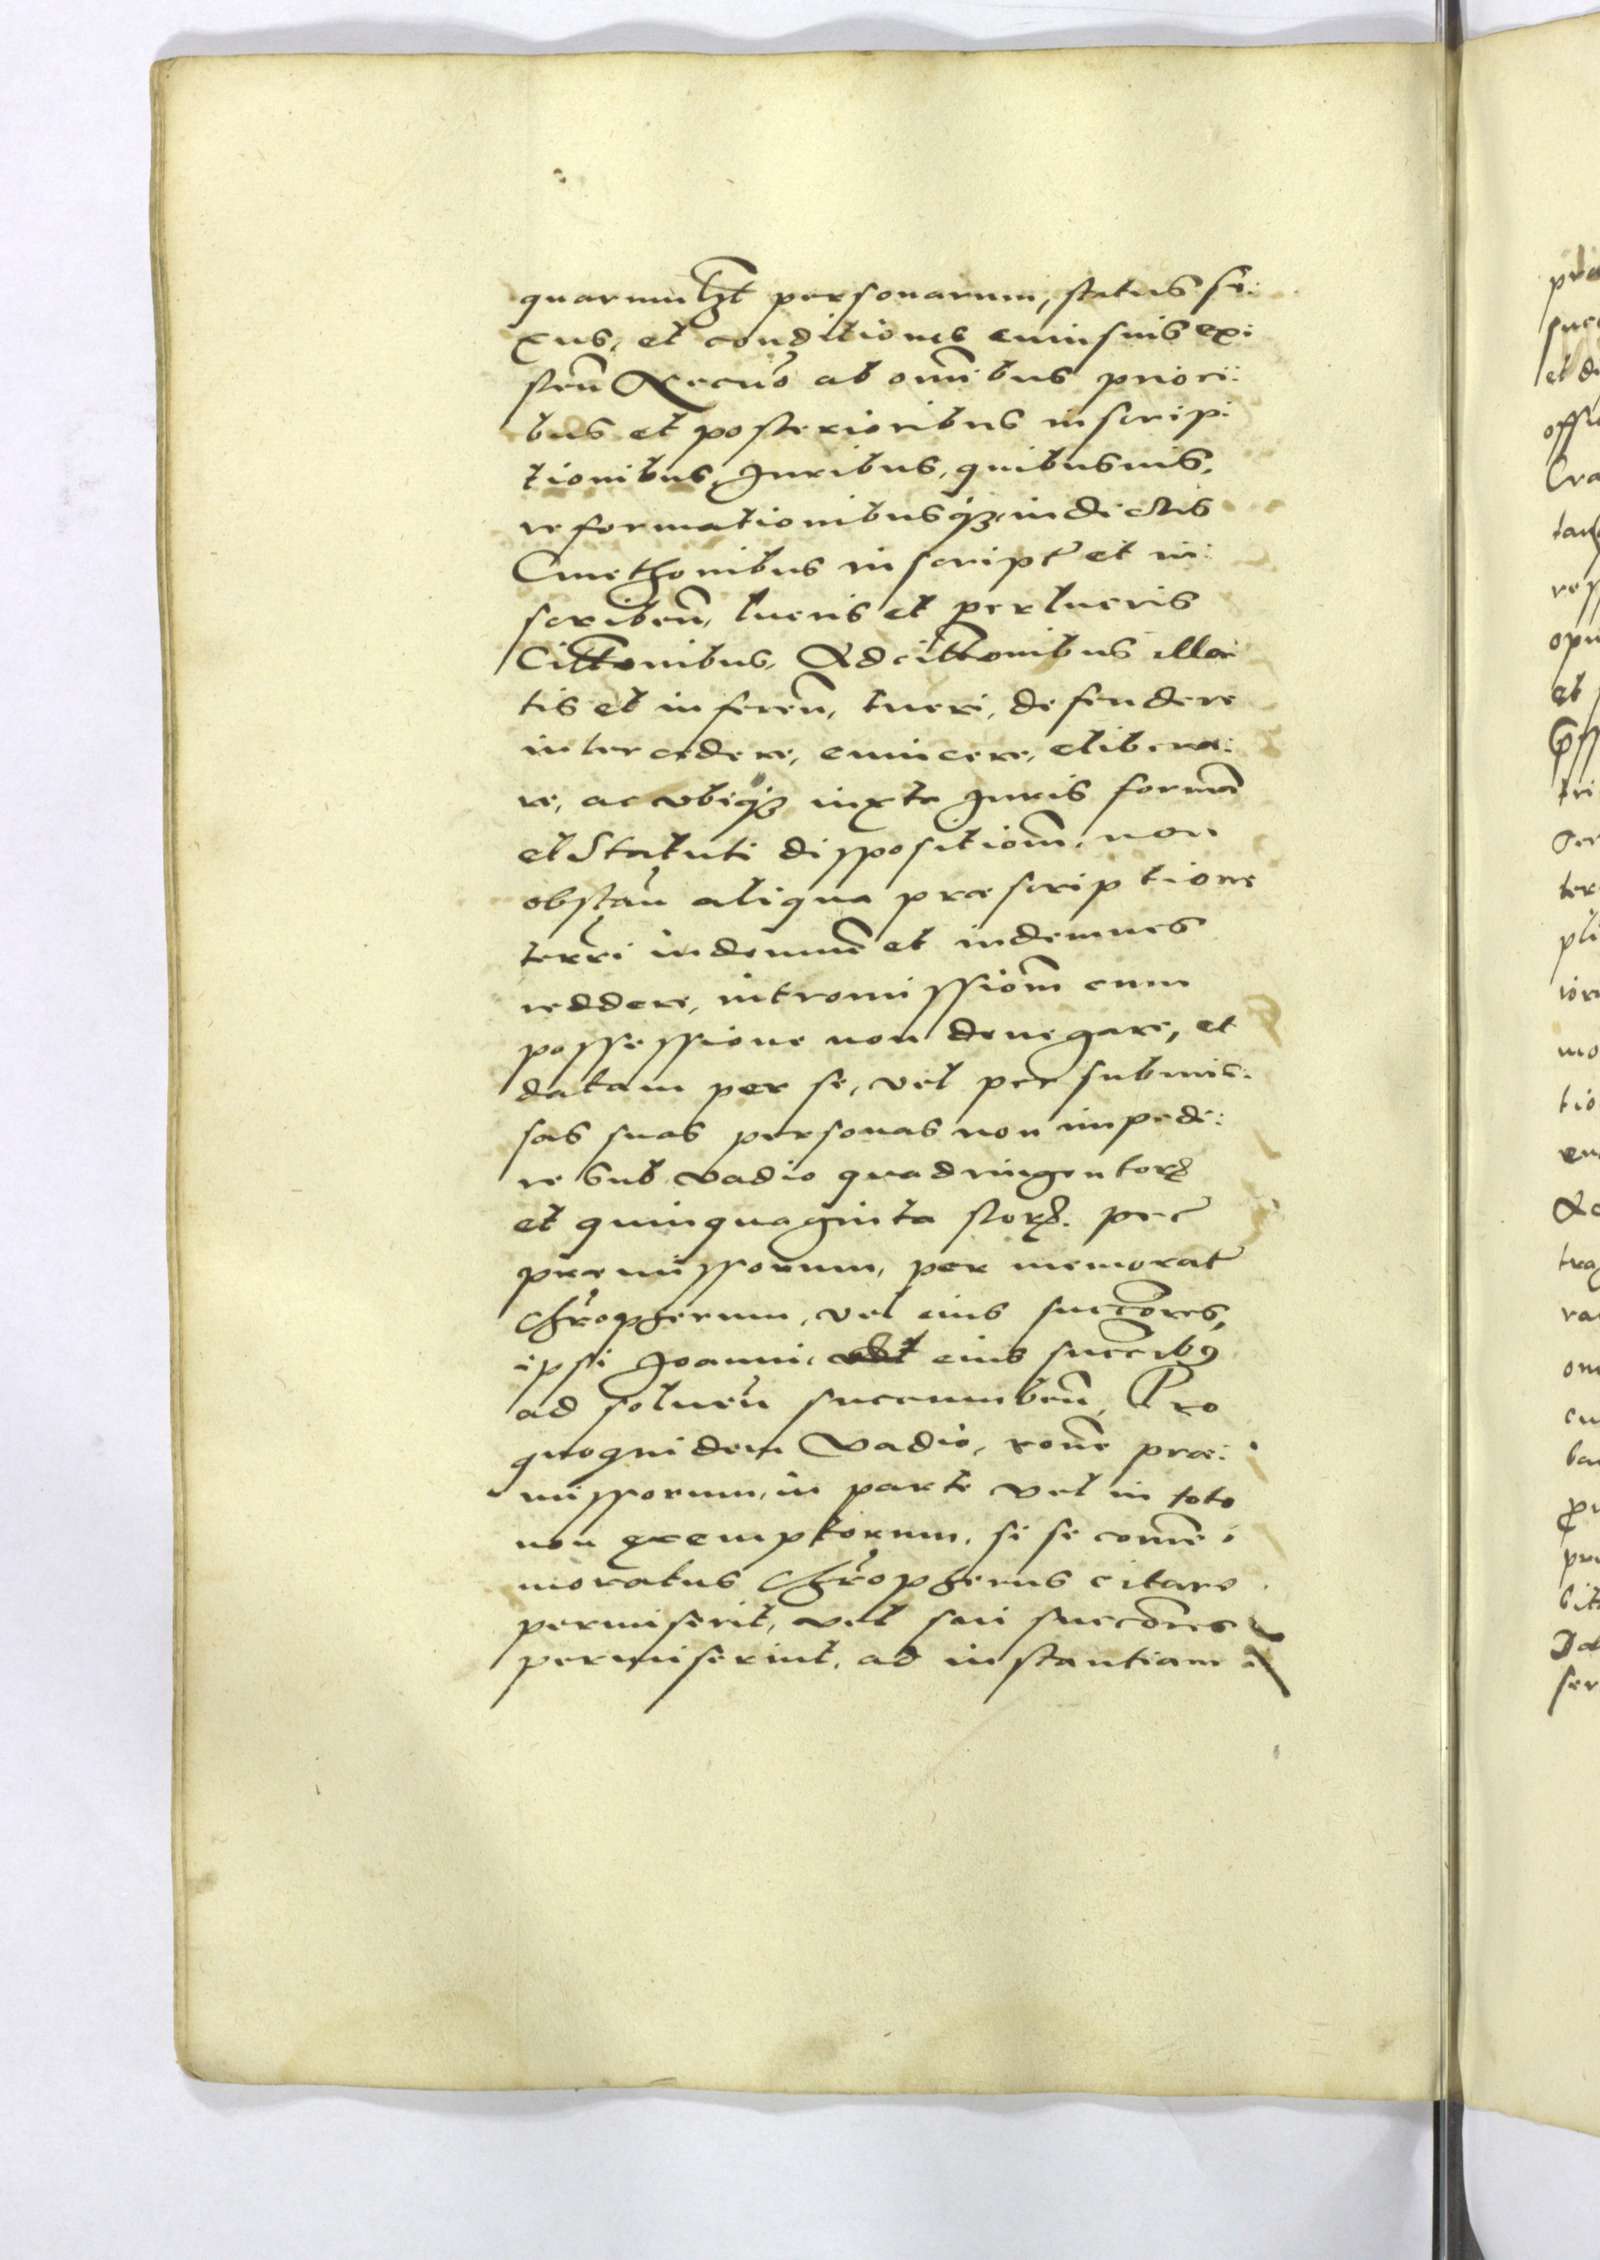 quarumlibt personarum, status se:
xus, et conditiones cuiusuis exi:
sten̄ Necno ab omībus priori:
bus et posterioribus inscrip:
tionibus, Iuribus, quibusuis,
reformationibusq́ʒ, in dictis
Cmethonibus inscript̄ et in:
scriben̄, lucris et perlucris
Citt̄onibus, Adcitt̄onibus illa:
tis et inferen̄, tueri, defendere
intercedere, euincere, elibera:
re, ac vbiq́ʒ iuxta Iuris formā
et Statuti dispositiom̄, non
obstan̄ aliqua præscriptione
terr̄i indemnē et indemnes
reddere, intromissiom̄ cum
possessione non denegare, et
datam per se, vel per submis:
sas suas personas non impedi:
re Sub vadio quadringentorʒ
et quinquaginta florʒ. pec̄
præmissorum, per memorat̄
Chr̄opherum, vel eius succ̄ores,
ipsi Joanni, vel eius succ̄ribꝰ
ad soluen̄ succumben̄, Pro
quoquidem Vadio, rōne præ:
missorum, in parte vel in toto
non exemptorum, si se comē:
moratus Chr̄opherus citare
permiserit, vel sui succ̄ores
permiserint, ad instantiam